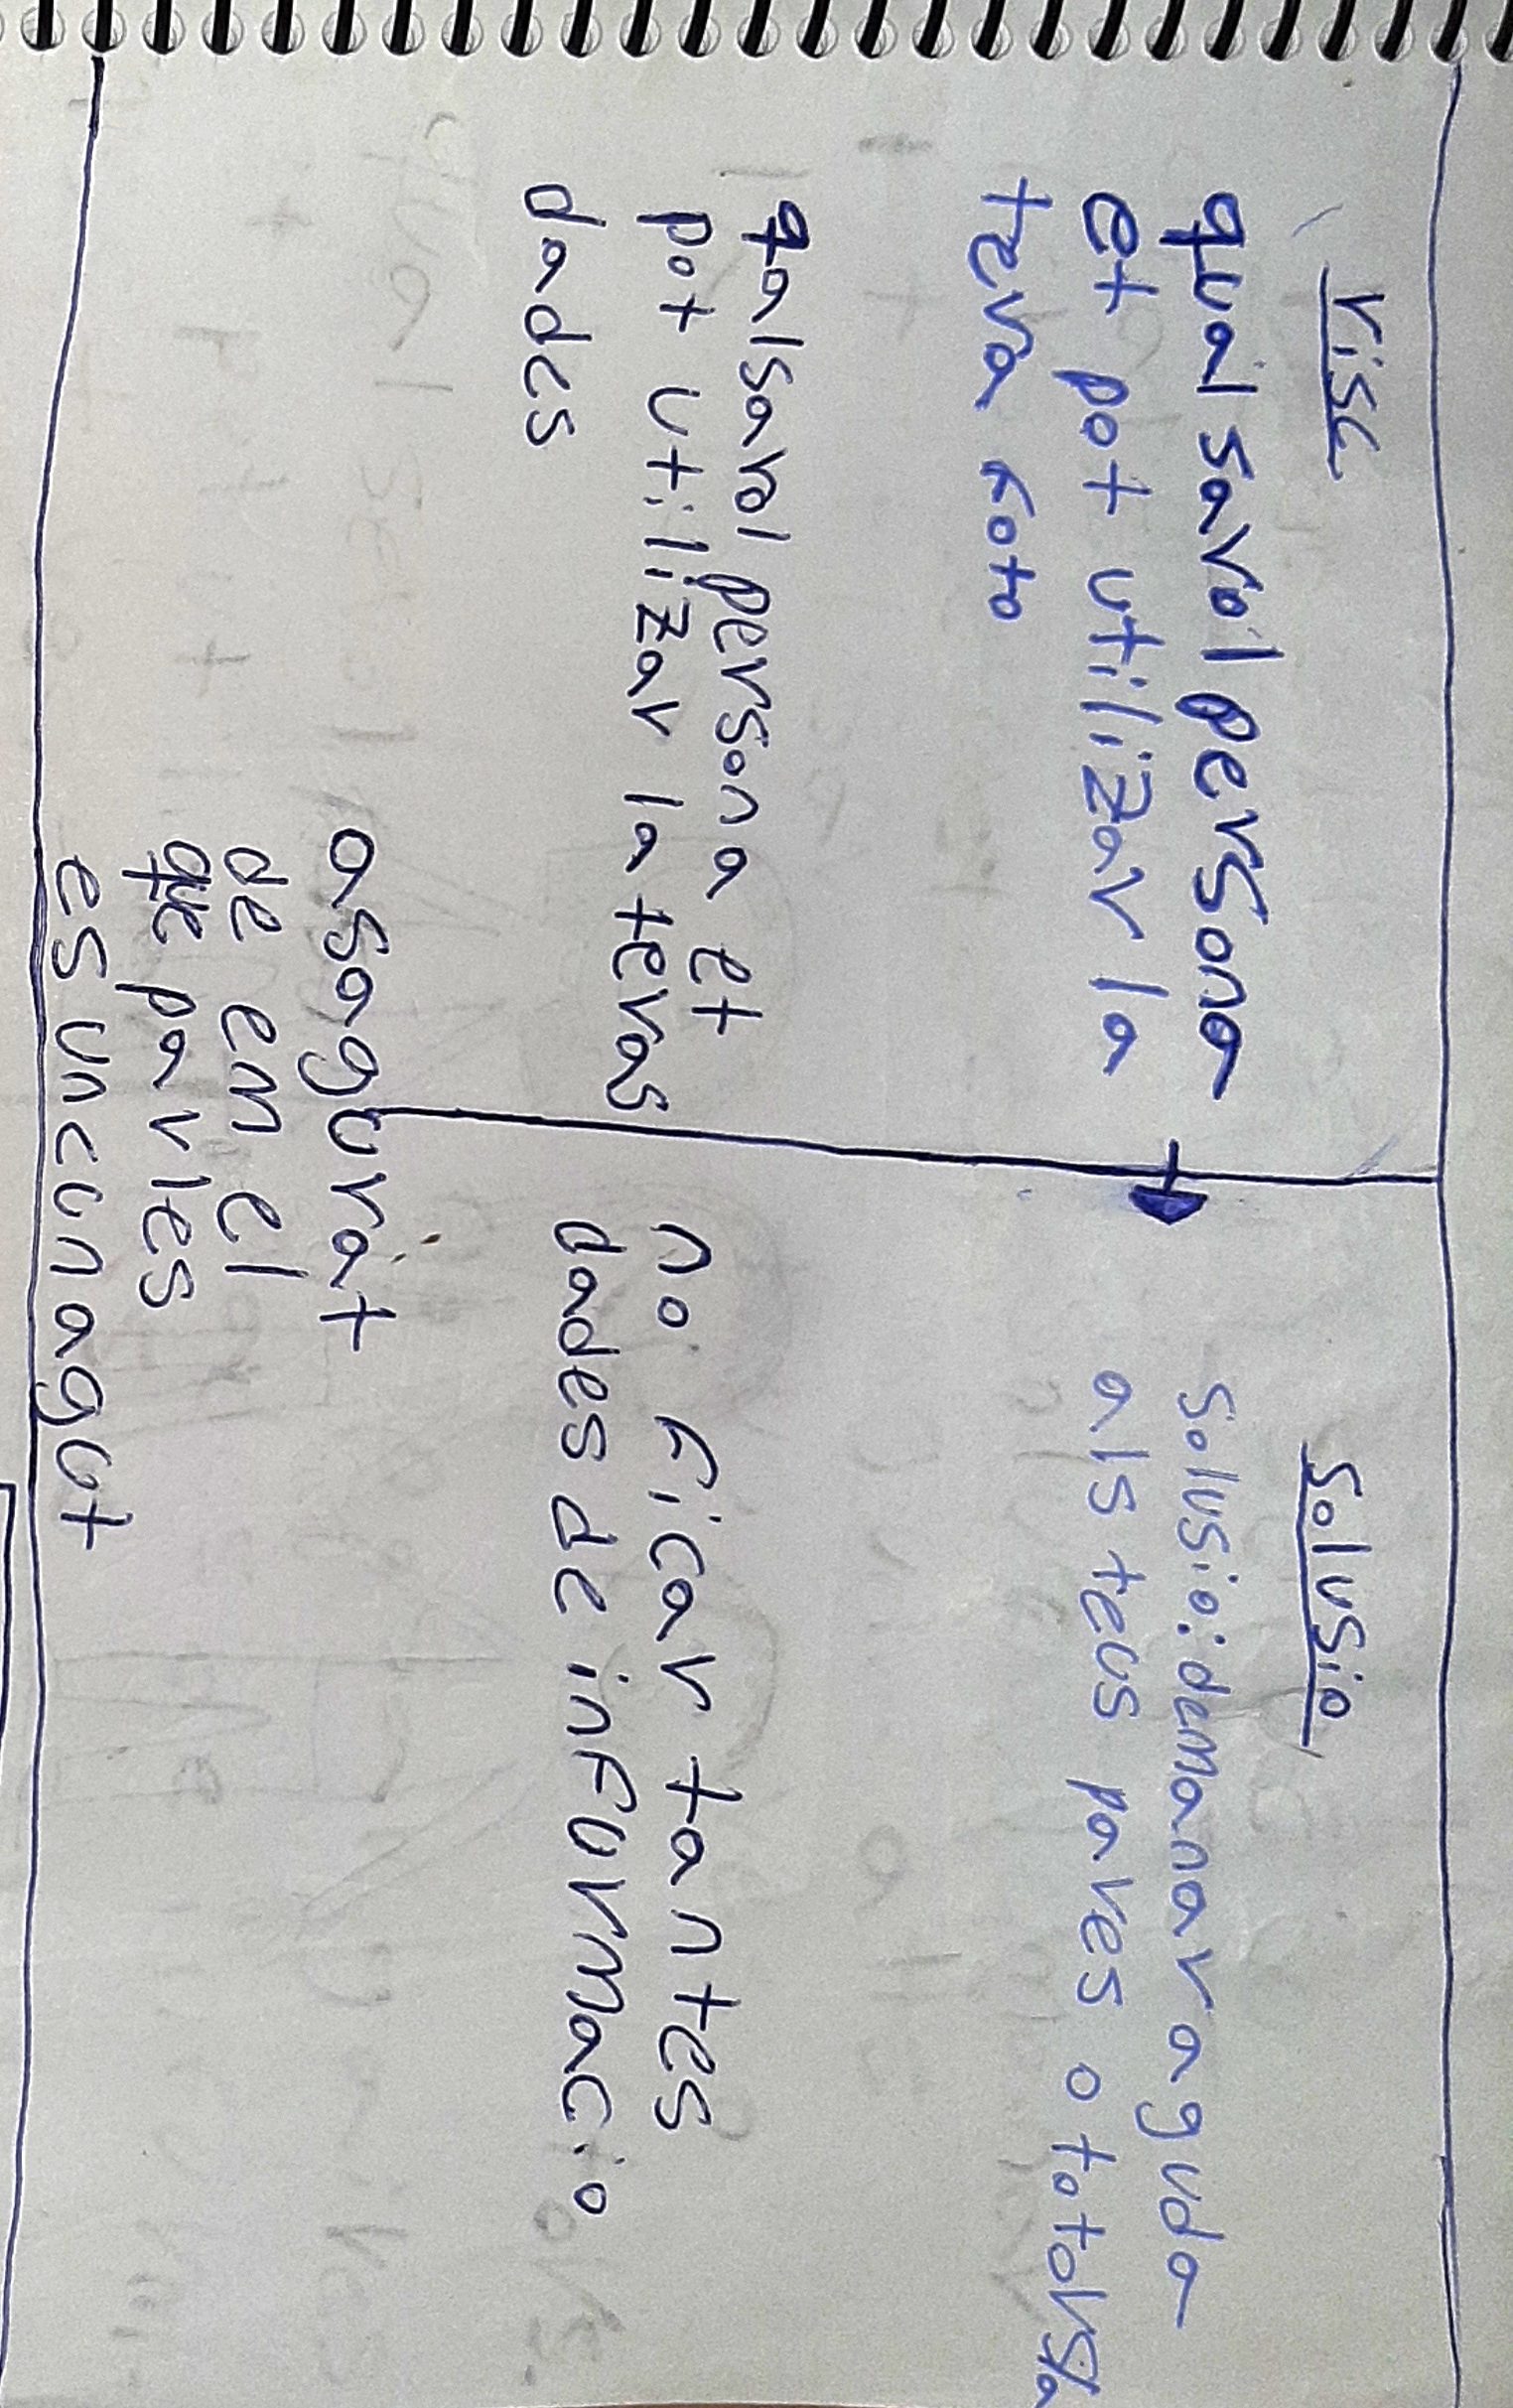 Risc
qualsavol persona
et pot utilizar la
teva foto
Solusio
Solusio: demanar aguda
als teus pares o totorsa
qalsavol persona et
pot utilizar la tevas
dades
no ficar tantes
dades de informacio
asagurat
de em el
que parles
es uncunagut